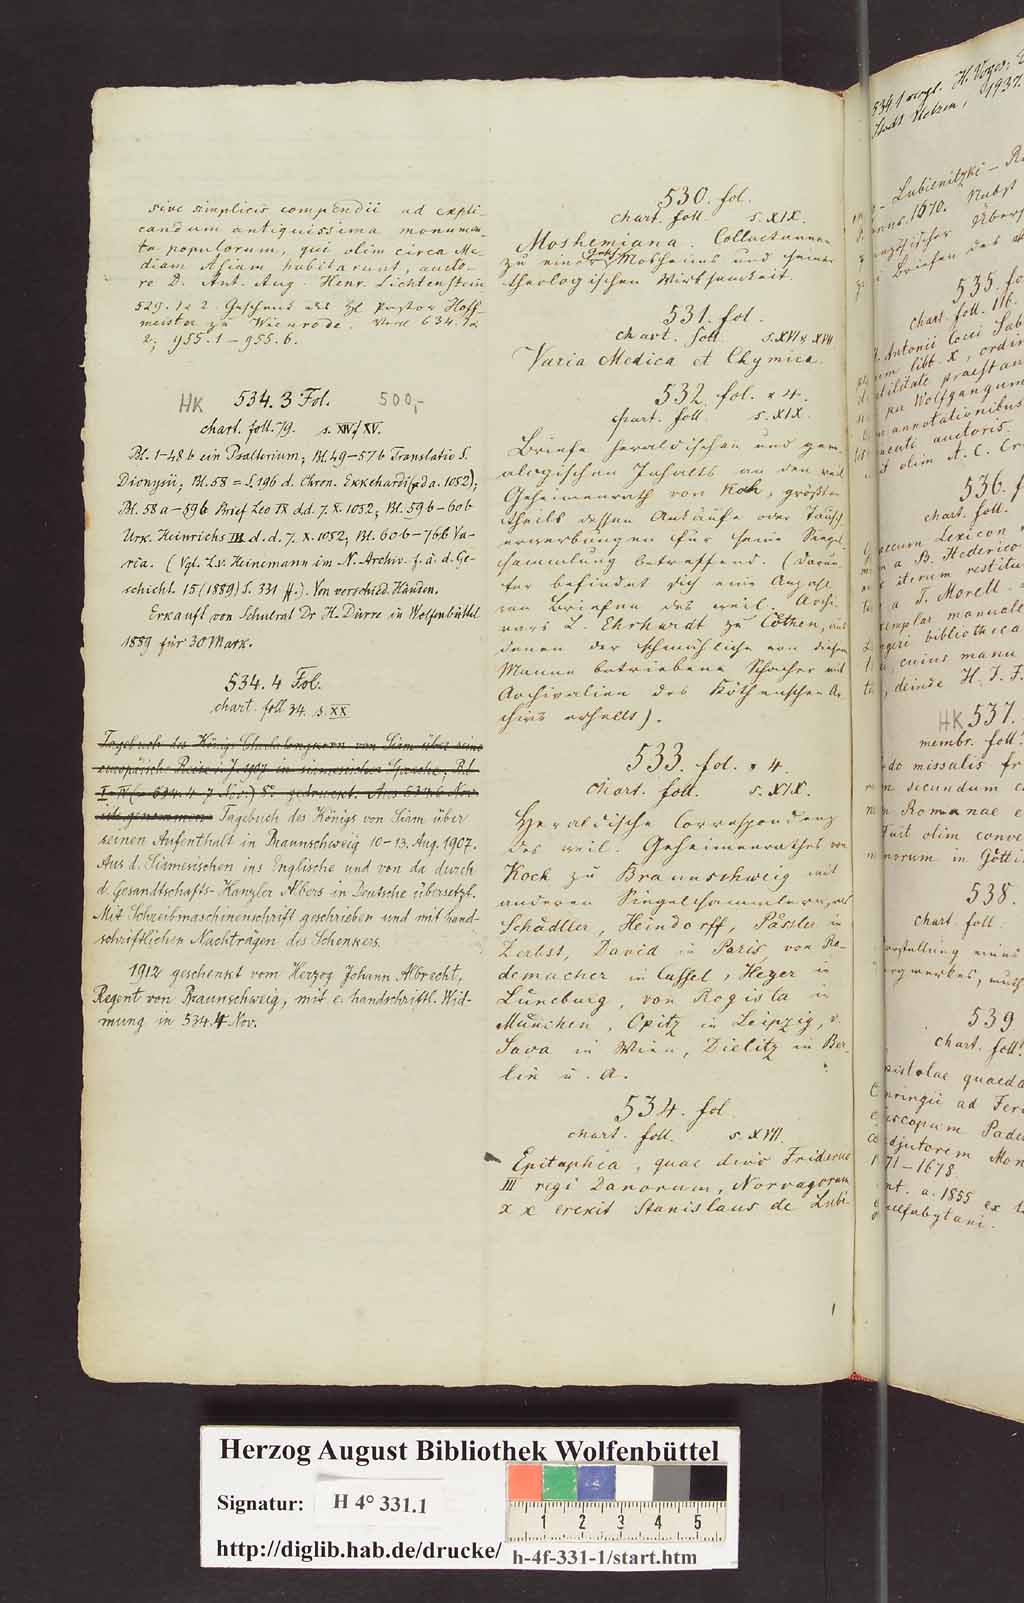 sive simplicis compendii ad expli-
candum antiquissima monumen-
ta populorum, qui olim circa Me-
diam Asiam habitarunt, aucto-
re D. Ant. Aug. Henr. Lichtenstein
529. 1 u 2. Geschenk des Hl Pastor Hoff-
meister zu Wienrode. 634. 1u
2; 955.1 – 955.6.
HK 534. 3 Fol. 500,-
chart. foll. 79. s. XIV/XV.
Bl. 1–48 b ein Psalterium; Bl. 49–57 b Translatio S.
Dionysii; Bl. 58 = d. Chron. Ekkehardi (ad a. 1052);
Bl. 58 a – 59 b Brief Leo IX d.d. 7. X. 1052; Bl. 59 b – 60 b
Urk. Heinrichs III d. d. 7. X. 1052; Bl. 60 b – 76 b Va-
ria. (Vgl. L.v. Heinemann im N. Archiv. f. ä. d. Ge-
schicht. 15 (1889) S. 331 ff.). Von verschied. Händen.
Erkauft von Schulrat Dr H. Dürre in Wolfenbüttel
1889 für 30 Mark.
534. 4 Fol.
chart. foll 34. s. XX
Tagebuch des Königs Chulalongkorn von Siam über seine
europäische Reise i. J. 1907 in siamesischer Sprache. Bd
I–IV (= 634. 4–7 Nov.) 8°. gedruckt. Aus 634.6 Nov.
Tagebuch des Königs von Siam über
seinen Aufenthalt in Braunschweig 10–13. Aug. 1907.
Aus d. Siamesischen ins Englische und von da durch
d. Gesandtschafts-Kanzler Albers in Deutsche übersetzt.
Mit Schreibmaschinenschrift geschrieben und mit hand-
schriftlichen Nachträgen des Schenkers.
1912 geschenkt vom Herzog Johann Albrecht,
Regent von Braunschweig, mit e. handschriftl. Wid-
mung in 534.4 Nov.
530. fol.
chart. foll. s. XIX.
Moshemiana. Collectaneen
zu einer Mosheims und seiner
theologischen Wirksamkeit.
531. fol.
chart. foll. s. XVI u XVII
Varia Medica et Chymica.
532. fol. u 4.
chart. foll. s. XIX.
Briefe heraldischen und gene-
alogischen Inhalts an den weil
Geheimenrath von Koch, größten
theils dessen Ankäufe oder Tausch
erwerbungen für seine Siegel-
sammlung betreffend. (Darun-
ter befindet sich eine Anzahl
von Briefen des weil. Archi-
vars L. Ehrhardt zu Cöthen, aus
denen der schmähliche von diesem
Manne betriebene Schacher mit
Archivalien des Köthenschen Ar-
chivs erhellt).
533. fol. u 4.
chart. foll. s. XIX.
Heraldische Correspondenz
des weil. Geheimenrathes von
Koch zu Braunschweig mit
anderen Siegelsammlern, als
Schädler, Heindorff, Pässler in
Zerbst, David in Paris, von Ra-
demacher in Cassel, Heyer in
Lüneburg, von Rogista in
München, Opitz in Leipzig, v.
Sava in Wien, Dielitz in Ber-
lin u. A.
534. fol.
chart. foll. s. XVII.
Epitaphia, quae divo Friderico
III regi Danorum, Norvagorum
x x erexit Stanislaus de Lubi-
534.1 vergl. H. Voges,
1937.
Lubienitzki –
1670.
Briefen des
535. fo
chart. foll. 116.
Antonii Cocci Sab
libb. X, ordin
praestan
Wolfgangum
annotationibus
auctoris.
olim A. C.
536. f
chart. foll.
Lexicon
a B. Hederico
iterum restitu
a T. Morell.
manuale
bibliotheca
cuius manu
deinde H. J. F.
HK 537.
membr. foll.
missalis fr
secundum
Romanae
Fuit olim conve
in Götti
538.
chart. foll.
539
chart. foll.
quaeda
ad Fer
Pade
Mon
71–1678
a. 1855 ex
Herzog August Bibliothek Wolfenbüttel
Signatur: H 4° 331.1
1 2 3 4 5
http://diglib.hab.de/drucke/ h-4f-331-1/start.htm